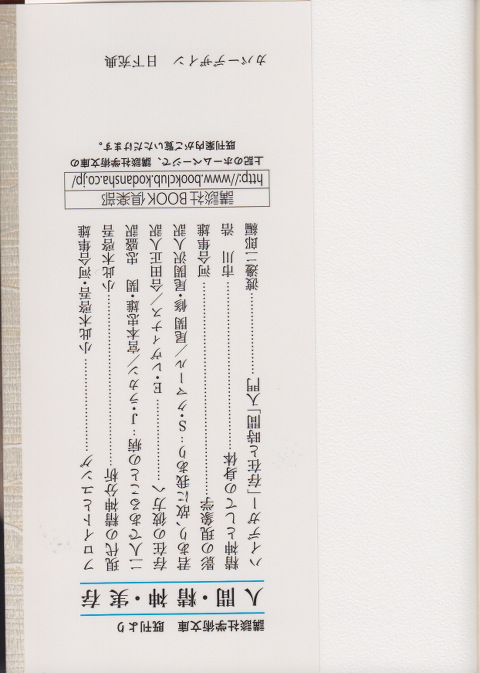 講談社学術文庫 既刊より
人間・精神・実存
フロイトとユング……………小此木啓吾・河合隼雄
現代の精神分析……………小此木啓吾
二人であることの病…J・ラカン／宮本忠雄・関 忠盛訳
存在の彼方へ……………E・レヴィナス／合田正人訳
君あり、故に我あり…S・クマール／尾関 修・尾関沢人訳
影の現象学……………河合隼雄
精神としての身体……………市川 浩
ハイデガー「存在と時間」入門……………渡邊二郎編
講談社BOOK倶楽部
http://www.bookclub.kodansha.co.jp/
上記のホームページで、講談社学術文庫の
既刊案内がご覧いただけます。
カバーデザイン 日下充典